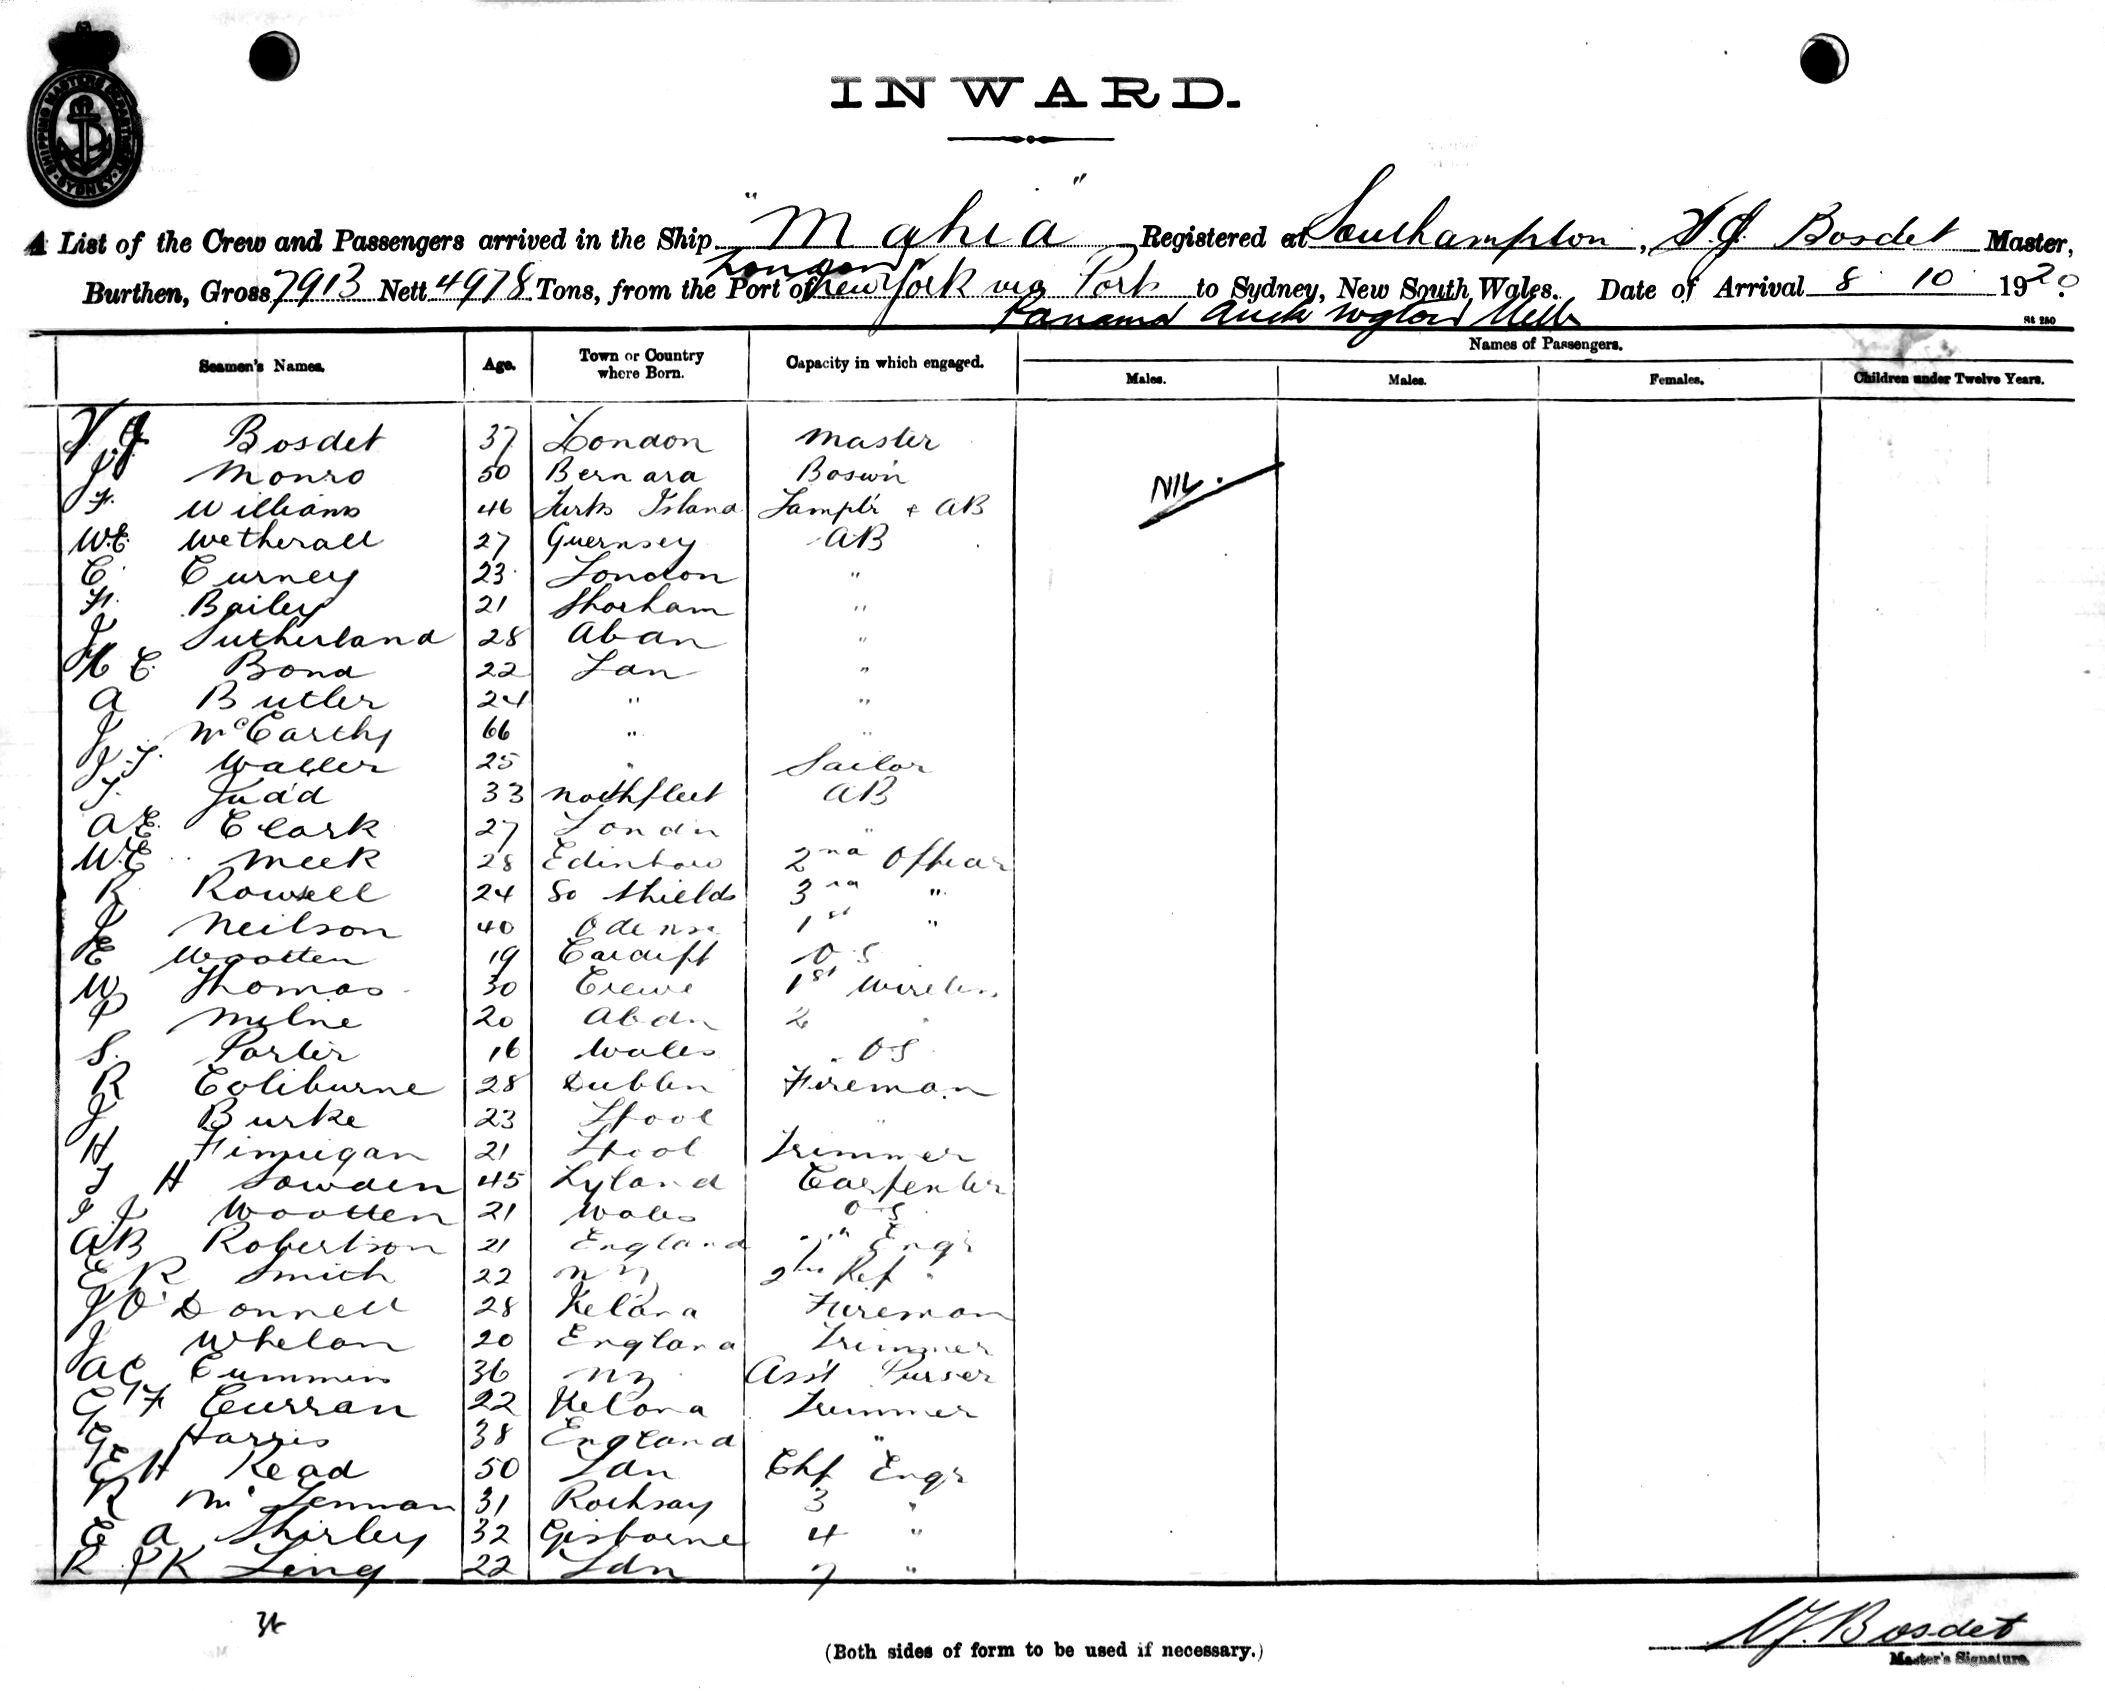 SHIPPING MASTERS DEPARTMENT SYDNEY
INWARD.
A List of the Crew and Passengers arrived in the Ship "Mahia" Registered at Southampton, V. J. Bosdet Master,
London
Burthen, Gross 7913 Nett 4978 Tons, from the Port of New York via Ports to Sydney, New South Wales. Date of Arrival 8 10 1920
Panama Auck Wgton Melb
St 250
Seamen's Names. Age. Town or Country where Born. Capacity in which engaged. Names of Passengers.
Males. Males. Females. Children under Twelve Years.
V. J. Bosdet 37 London Master
J Monro 50 Bernara Boswn
NIL.
F. Williams 46 Turks Island Lampt'r & AB
W.E. Wetherall 27 Guernsey AB
C. Curney 23 London "
F. Bailey 21 Shorham "
J Sutherland 28 Abdn "
H C. Bond 22 Ldn "
A Butler 24 " "
J McCarthy 66 " "
J.T. Waller 25 " Sailor
T. Judd 33 Northfleet AB
A E. Clark 27 Londn "
W.E. Meek 28 2nd Officer
R Rowsell 24 So Shields 3rd "
J Neilson 40 Odense 1st "
E Wootten 19 Cardiff O S
W Thomas 30 Crewe 1st Wireless
P Milne 20 Abdn 2 "
S. Porter 16 Wales OS
R Coliburne 28 Dublin Fireman
J Burke 23 Lpool "
H Finnigan 21 Lpool Trimmer
T H Sowden 45 Carpenter
J Wootten 21 Wales OS
A B Robertson 21 England Engr
E R Smith 22 NZ 2nd Ref "
J O'Donnell 28 Fireman
J Whelan 20 England Trimmer
AC Cummins 36 NZ Asst Purser
G F Curran 22 Trimmer
G Harris 38 England "
E H Read 50 Ldn Chf Engr
R McLennan 31 Rothsay 3 "
E A Shirley 32 Gisborne 4 "
R P K Ling 22 Ldn 7 "
36
V J. Bosdet
(Both sides of form to be used if necessary.)
Master's Signature.